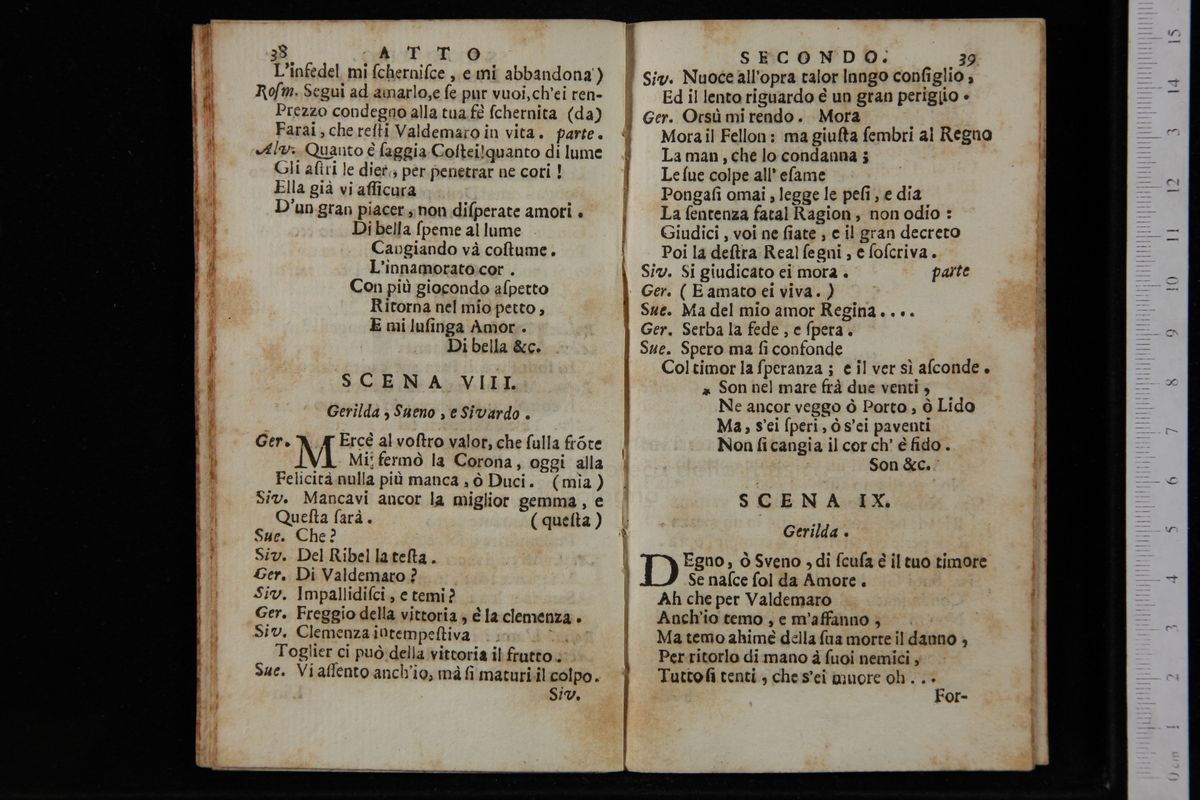 38 ATTO
L'infedel mi ſcherniſce , e mi abbandona )
Roſm. Segui ad amarlo,e ſe pur vuoi,ch'ei ren-
Prezzo condegno alla tua fè ſchernita (da)
Farai , che reſti Valdemaro in vita . parte .
Alv. Quanto è ſaggia Coſtei!quanto di lume
Gli aſtri le dier , per penetrar ne cori !
Ella già vi aſſicura
D'un gran piacer , non diſperate amori .
Di bella ſpeme al lume
Cangiando và coſtume .
L'innamorato cor .
Con più giocondo aſpetto
Ritorna nel mio petto ,
E mi luſinga Amor .
Di bella &c.
SCENA VIII.
Gerilda , Sueno , e Sivardo .
Ger. MErcè al voſtro valor, che ſulla frōte
Mi fermò la Corona , oggi alla
Felicità nulla più manca , ò Duci . (mia )
Siv. Mancavi ancor la miglior gemma , e
Queſta ſarà . ( queſta )
Sue. Che ?
Siv. Del Ribel la teſta .
Ger. Di Valdemaro ?
Siv. Impallidiſci , e temi ?
Ger. Freggio della vittoria , è la clemenza .
Siv. Clemenza intempeſtiva
Toglier ci può della vittoria il frutto .
Sue. Vi aſſento anch'io, mà ſi maturi il colpo.
Siv.
SECONDO. 39
Siv. Nuoce all'opra talor lnngo conſiglio ,
Ed il lento riguardo è un gran periglio .
Ger. Orsù mi rendo . Mora
Mora il Fellon : ma giuſta ſembri al Regno
La man , che lo condanna ;
Le ſue colpe all' eſame
Pongaſi omai , legge le peſi , e dia
La ſentenza fatal Ragion , non odio :
Giudici , voi ne ſiate , e il gran decreto
Poi la deſtra Real ſegni , e ſoſcriva .
Siv. Si giudicato ei mora . parte
Ger. ( E amato ei viva . )
Sue. Ma del mio amor Regina . . . .
Ger. Serba la fede , e ſpera .
Sue. Spero ma ſi confonde
Col timor la ſperanza ; e il ver sì aſconde .
* Son nel mare frà due venti ,
Ne ancor veggo ò Porto , ò Lido
Ma , s'ei ſperi , ò s'ei paventi
Non ſi cangia il cor ch' è fido .
Son &c.
SCENA IX.
Gerilda .
DEgno , ò Sveno , di ſcuſa è il tuo timore
Se naſce ſol da Amore .
Ah che per Valdemaro
Anch'io temo , e m'affanno ,
Ma temo ahimè della ſua morte il danno ,
Per ritorlo di mano à ſuoi nemici ,
Tutto ſi tenti , che s'ei muore oh . . .
For-
15
14
13
12
11
10
9
8
7
6
5
4
3
2
1
0 cm